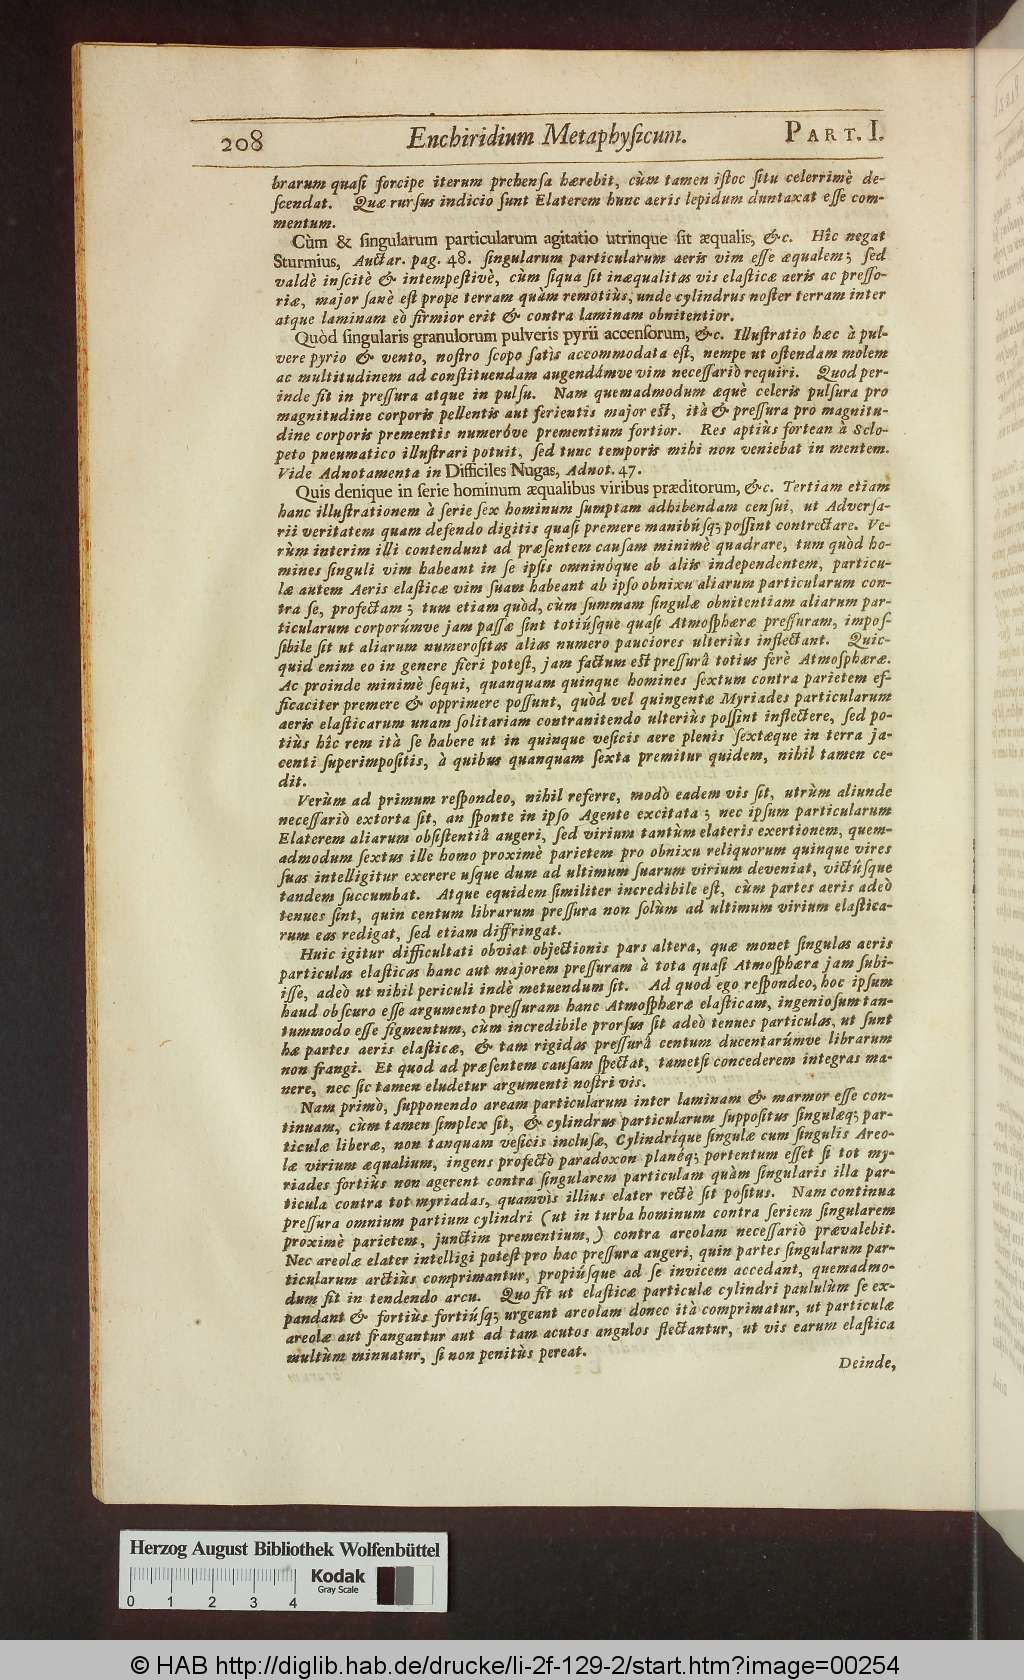 208 Enchiridium Metaphyſicum. PART. I.
brarum quaſi forcipe iterum prehenſa hærebit, cùm tamen iſtoc ſitu celerrimè de-
ſcendat. Quæ rurſus indicio ſunt Elaterem hunc aeris lepidum duntaxat eſſe com-
mentum.
Cùm & ſingularum particularum agitatio utrinque ſit æqualis, &c. Hîc negat
Sturmius, Auctar. pag. 48. ſingularum particularum aeris vim eſſe æqualem; ſed
valdè inſcitè & intempeſtivè, cùm ſiqua ſit inæqualitas vis elaſticæ aeris ac preſſo-
riæ, major ſanè eſt prope terram quàm remotiùs, unde cylindrus noſter terram inter
atque laminam eò firmior erit & contra laminam obnitentior.
Quòd ſingularis granulorum pulveris pyrii accenſorum, &c. Illuſtratio hæc à pul-
vere pyrio & vento, noſtro ſcopo ſatìs accommodata eſt, nempe ut oſtendam molem
ac multitudinem ad conſtituendam augendámve vim neceſſariò requiri. Quod per-
inde ſit in preſſura atque in pulſu. Nam quemadmodum æquè celeris pulſura pro
magnitudine corporis pellentis aut ferientis major eſt, ità & preſſura pro magnitu-
dine corporis prementis numeróve prementium fortior. Res aptiùs fortean à Sclo-
peto pneumatico illuſtrari potuit, ſed tunc temporis mihi non veniebat in mentem.
Vide Adnotamenta in Difficiles Nugas, Adnot. 47.
Quis denique in ſerie hominum æqualibus viribus præditorum, &c. Tertiam etiam
hanc illuſtrationem à ſerie ſex hominum ſumptam adhibendam cenſui, ut Adverſa-
rii veritatem quam defendo digitis quaſi premere manibúſq; poſſint contrectare. Ve-
rùm interim illi contendunt ad præſentem cauſam minimè quadrare, tum quòd ho-
mines ſinguli vim habeant in ſe ipſis omninóque ab aliis independentem, particu-
læ autem Aeris elaſticæ vim ſuam habeant ab ipſo obnixu aliarum particularum con-
tra ſe, profectam; tum etiam quòd, cùm ſummam ſingulæ obnitentiam aliarum par-
ticularum corporúmve jam paſſæ ſint totiúſque quaſi Atmoſphæræ preſſuram, impoſ-
ſibile ſit ut aliarum numeroſitas alias numero pauciores ulteriùs inflectant. Quic-
quid enim eo in genere fieri poteſt, jam factum eſt preſſurâ totius ferè Atmoſphæræ.
Ac proinde minimè ſequi, quanquam quinque homines ſextum contra parietem ef-
ficaciter premere & opprimere poſſunt, quòd vel quingentæ Myriades particularum
aeris elaſticarum unam ſolitariam contranitendo ulteriùs poſſint inflectere, ſed po-
tiùs hîc rem ità ſe habere ut in quinque veſicis aere plenis ſextæque in terra ja-
centi ſuperimpoſitis, à quibus quanquam ſexta premitur quidem, nihil tamen ce-
dit.
Verùm ad primum reſpondeo, nihil referre, modò eadem vis ſit, utrùm aliunde
neceſſariò extorta ſit, an ſponte in ipſo Agente excitata; nec ipſum particularum
Elaterem aliarum obſiſtentiâ augeri, ſed virium tantùm elateris exertionem, quem-
admodum ſextus ille homo proximè parietem pro obnixu reliquorum quinque vires
ſuas intelligitur exerere uſque dum ad ultimum ſuarum virium deveniat, victúſque
tandem ſuccumbat. Atque equidem ſimiliter incredibile eſt, cùm partes aeris adeò
tenues ſint, quin centum librarum preſſura non ſolùm ad ultimum virium elaſtica-
rum eas redigat, ſed etiam diffringat.
Huic igitur difficultati obviat objectionis pars altera, quæ monet ſingulas aeris
particulas elaſticas hanc aut majorem preſſuram à tota quaſi Atmoſphæra jam ſubi-
iſſe, adeò ut nihil periculi indè metuendum ſit. Ad quod ego reſpondeo, hoc ipſum
haud obſcuro eſſe argumento preſſuram hanc Atmoſphæræ elaſticam, ingenioſum tan-
tummodo eſſe figmentum, cùm incredibile prorſus ſit adeò tenues particulas, ut ſunt
hæ partes aeris elaſticæ, & tam rigidas preſſurâ centum ducentarúmve librarum
non frangi. Et quod ad præſentem cauſam ſpectat, tametſi concederem integras ma-
nere, nec ſic tamen eludetur argumenti noſtri vis.
Nam primò, ſupponendo aream particularum inter laminam & marmor eſſe con-
tinuam, cùm tamen ſimplex ſit, & cylindrus particularum ſuppoſitus ſingulæq; par-
ticulæ liberæ, non tanquam veſicis incluſæ, Cylindrique ſingulæ cum ſingulis Areo-
læ virium æqualium, ingens profectò paradoxon planéq; portentum eſſet ſi tot my-
riades fortiùs non agerent contra ſingularem particulam quàm ſingularis illa par-
ticula contra tot myriadas, quamvìs illius elater rectè ſit poſitus. Nam continua
preſſura omnium partium cylindri (ut in turba hominum contra ſeriem ſingularem
proximè parietem, junctim prementium,) contra areolam neceſſariò prævalebit.
Nec areolæ elater intelligi poteſt pro hac preſſura augeri, quin partes ſingularum par-
ticularum arctiùs comprimantur, propiúſque ad ſe invicem accedant, quemadmo-
dum fit in tendendo arcu. Quo fit ut elaſticæ particulæ cylindri paululùm ſe ex-
pandant & fortiùs fortiúſq; urgeant areolam donec ità comprimatur, ut particulæ
areolæ aut frangantur aut ad tam acutos angulos flectantur, ut vis earum elaſtica
multùm minuatur, ſi non penitùs pereat.
Deinde,
Herzog August Bibliothek Wolfenbüttel
Kodak
Gray Scale
0 1 2 3 4
© HAB http://diglib.hab.de/drucke/li-2f-129-2/start.htm?image=00254